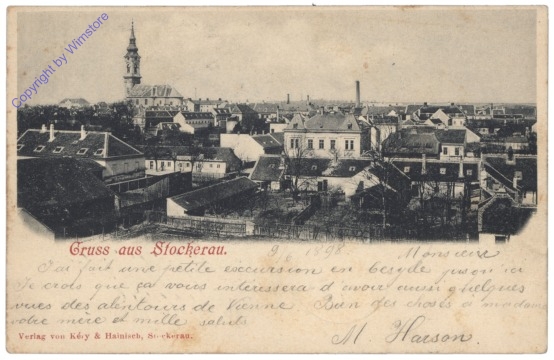 Copyright by Wimstore
Gruss aus Stockerau.
9/6 1898 Monsieur
J'ai fait une petite excursion en bcycle jusqu'ici
Je crois que ça vous interessera d'avoir aussi quelques
vues des alentours de Vienne Bien des choses à madame
votre mère et mille saluts
M Harson.
Verlag von Kéry & Hainisch, Stockerau.